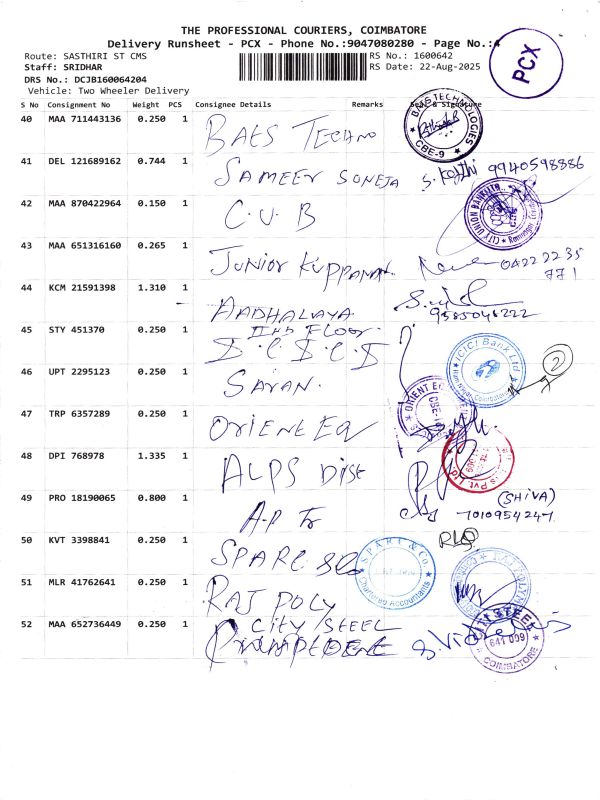 THE PROFESSIONAL COURIERS, COIMBATORE
Delivery Runsheet - PCX - Phone No.:9047080280 - Page No.:4
PCX
Route: SASTHIRI ST CMS
RS No.: 1600642
Staff: SRIDHAR
RS Date: 22-Aug-2025
DRS No.: DCJB160064204
Vehicle: Two Wheeler Delivery
S No Consignment No Weight PCS Consignee Details Remarks Seal & Signature
40 MAA 711443136 0.250 1 BAES TECHNO
CBE-9
41 DEL 121689162 0.744 1 SAMEER SONEJA 9940598886
42 MAA 870422964 0.150 1 C.U.B
CITY UNION BANK LTD
43 MAA 651316160 0.265 1 JUNIOR KUPPANNA 04222235
771
44 KCM 21591398 1.310 1 AADHALAYA 9585048222
IInd FLOOR
45 STY 451370 0.250 1
ICICI Bank Ltd
2
46 UPT 2295123 0.250 1 SARAN.
47 TRP 6357289 0.250 1 ORIENT EQ
ORIENT EQ
48 DPI 768978 1.335 1 ALPS DIST
49 PRO 18190065 0.800 1 A.P Tr
(SHIVA)
7010954247
50 KVT 3398841 0.250 1 SPARC
SPARK & Co.
Chartered Accountants
51 MLR 41762641 0.250 1 RAJ POLY
52 MAA 652736449 0.250 1 CITY STEEL
CITY STEEL
641 009
COIMBATORE